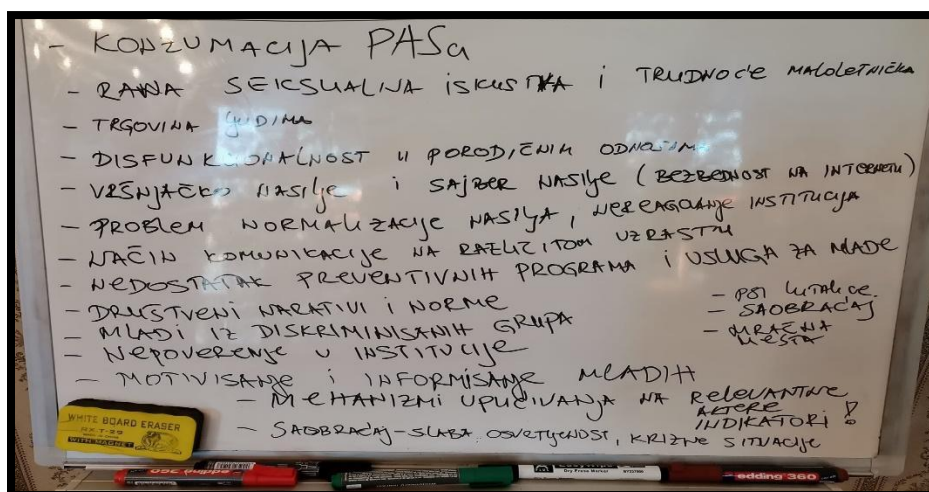 - KONZUMACIJA PASa
- RANA SEKSUALNA iSKUSTVA i TRUDNOĆE MALOLETNIČKA
- TRGOVINA LJUDIMA
- DISFUNKCIONALNOST U PORODIČNIM ODNOSIMA
- VRŠNJAČKO NASILJE i SAJBER NASILJE (BEZBEDNOST NA INTERNETU)
- PROBLEM NORMALIZACIJE NASILJA, NEREAGOVANJE INSTITUCIJA
- NAČIN KOMUNIKACIJE NA RAZLIČITOM UZRASTU
- NEDOSTATAK PREVENTIVNIH PROGRAMA i USLUGA ZA MLADE
- DRUŠTVENI NARATIVI i NORME
- MLADI IZ DISKRIMINISANIH GRUPA
- NEPOVERENJE U INSTITUCIJE
- PSI LUTALICE
- SAOBRAĆAJ
- MRAČNA MESTA
- MOTIVISANJE i INFORMISANJE MLADIH
- MEHANIZMI UPUĆIVANJA NA RELEVANTNE AKTERE
INDIKATORI!
- SAOBRAĆAJ-SLABA OSVETLJENOST, KRIZNE SITUACIJE
WHITE BOARD ERASER
WITH MAGNET
Dry Erase Marker
edding 360
edding 360